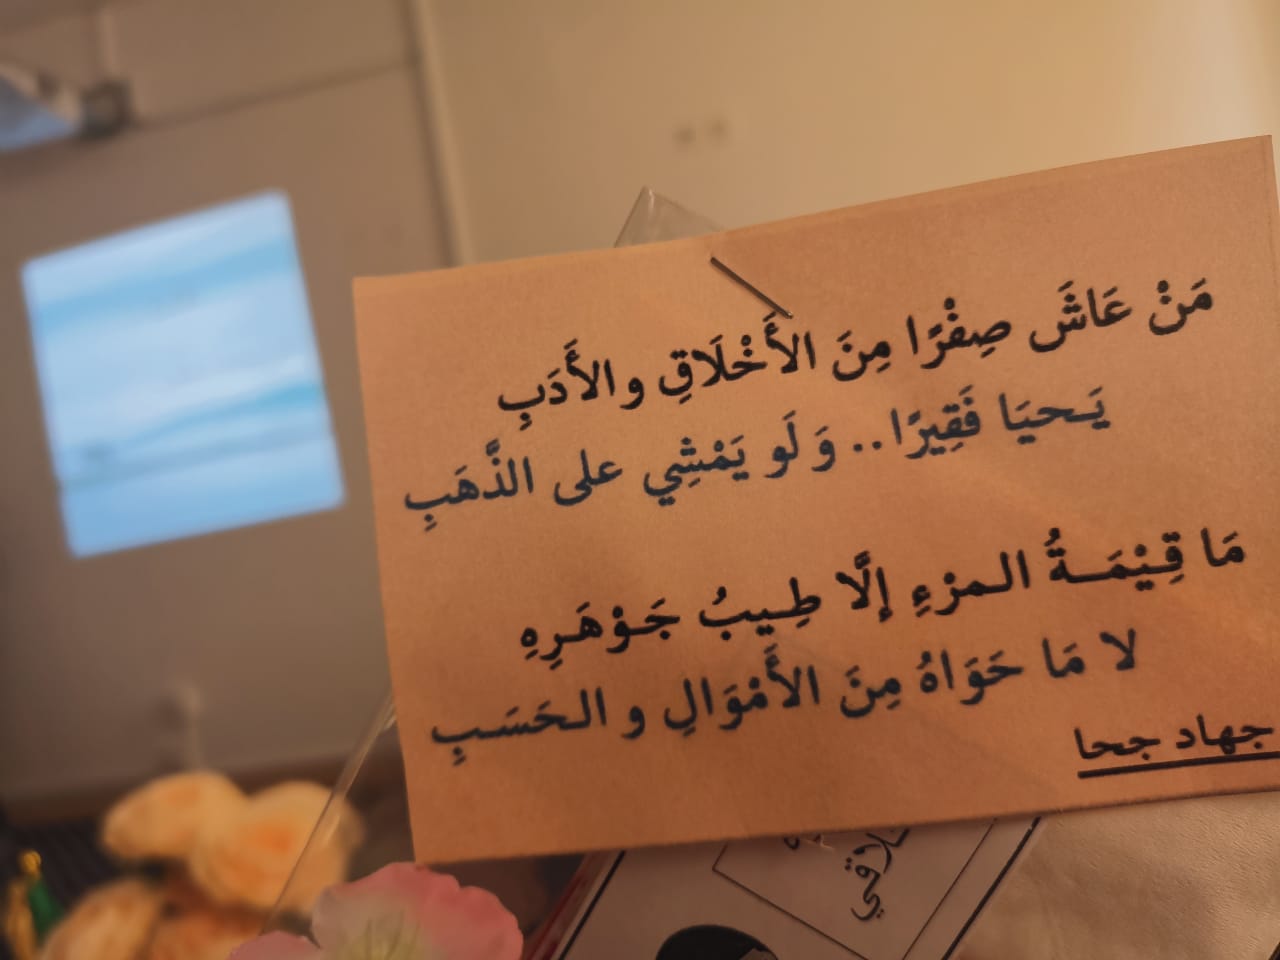 مَنْ عَاشَ صِفْرًا مِنَ الأَخْلَاقِ والأَدَبِ
يَـحيَا فَقِيرًا.. وَ لَو يَمْشِي على الذَّهَبِ
مَا قِـيْمَـةُ الـمرْءِ إلَّا طِـيبُ جَـوْهَـرِهِ
لا مَا حَوَاهُ مِنَ الأَمْوَالِ و الـحَسَـبِ
جهاد جحا